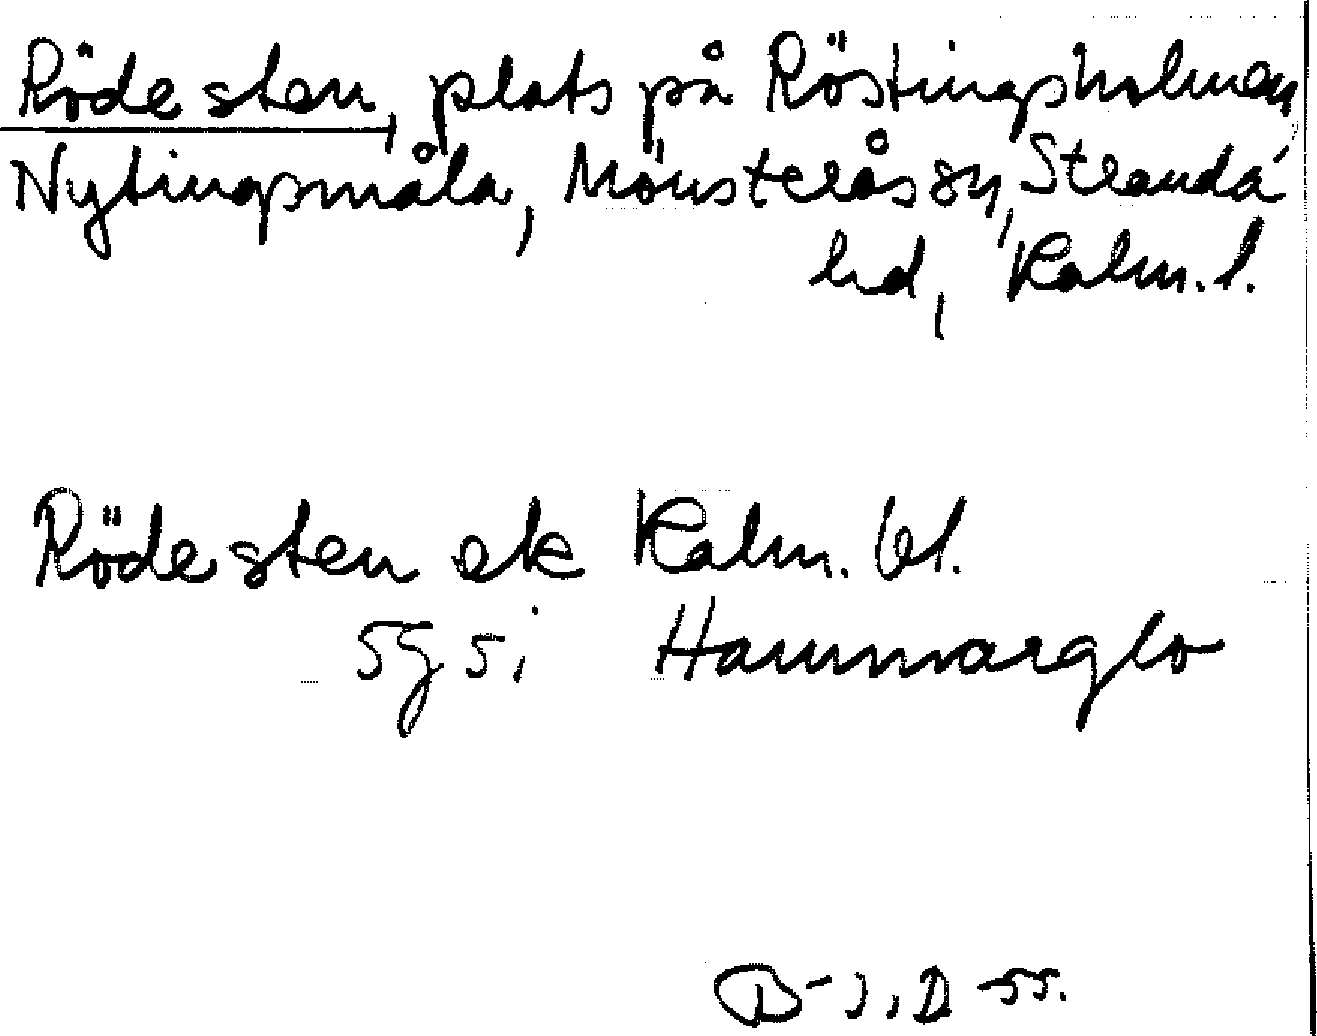 Röde sten, plats på Röstingsholmen,
Nytingsmåla, Mönsterås sn, Stranda
hd, Kalm. l.
Röde sten ek Kalm. bl.
Hammarglo
B-J. D -55.